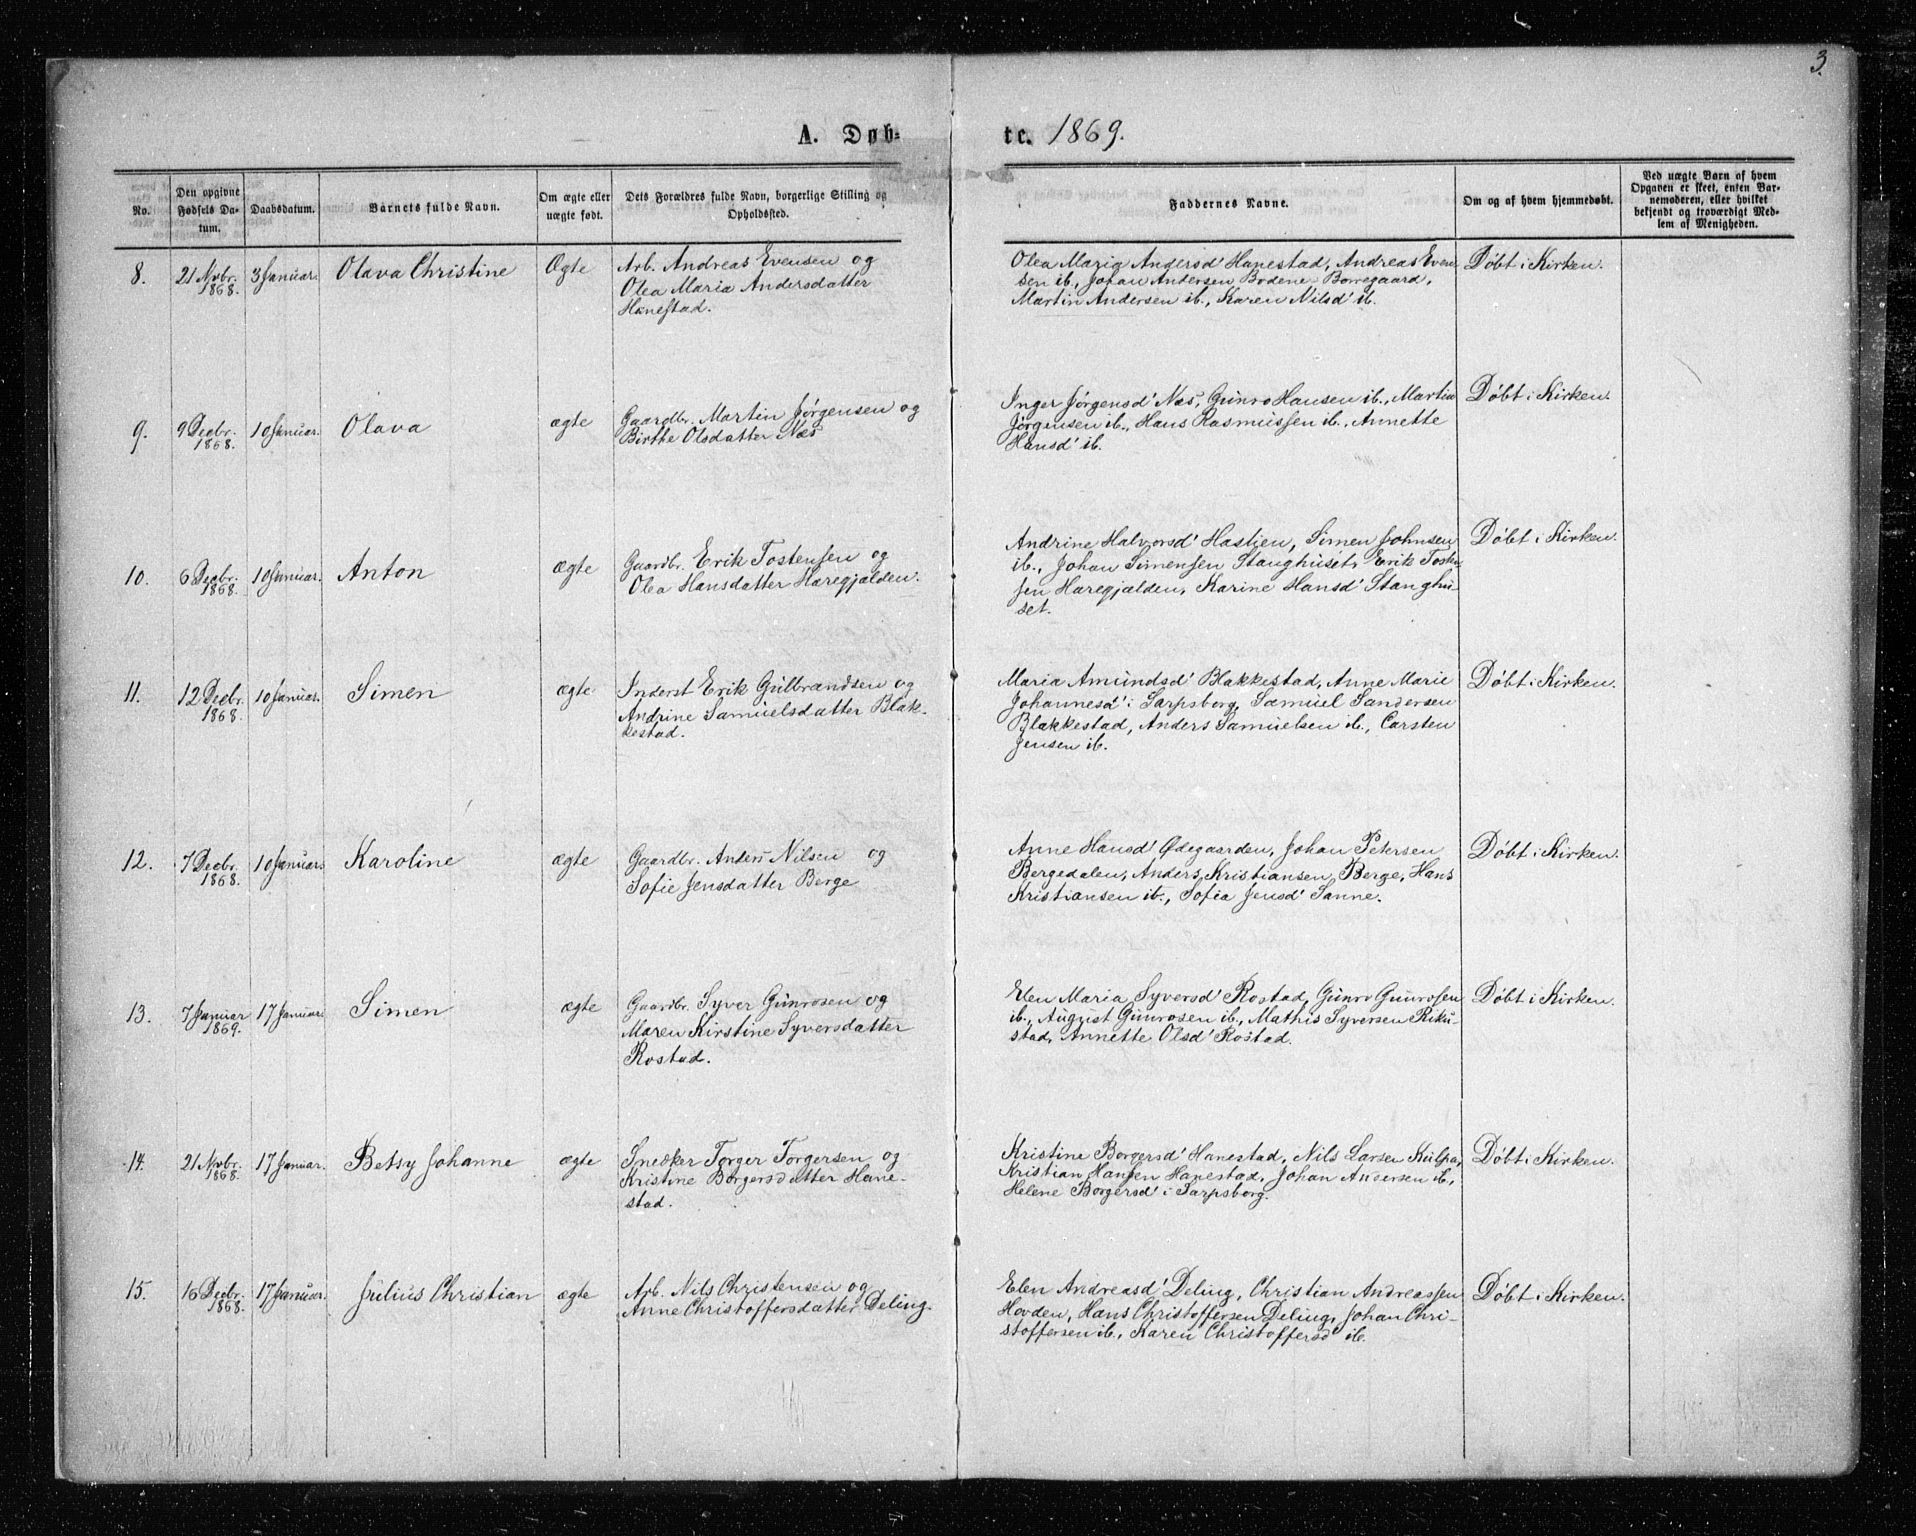 3.
A. Døb-
te. 1869.
No.
Den opgivne
Fødsels Da-
tum.
Daabsdatum.
Barnets fulde Navn.
Om ægte eller
uægte født.
Dets Forældres fulde Navn, borgerlige Stilling og
Opholdssted.
Faddernes Navne.
Om og af hvem hjemmedøbt.
Ved uægte Barn af hvem
Opgaven er skeet, enten Bar-
nemoderen, eller hvilket
bekjendt og troværdigt Med-
lem af Menigheden.
8.
21 Novbr.
1868.
3 Januar.
Olava Christine
Ægte
Arb. Andreas Evensen og
Olea Maria Andersdatter
Hanestad.
Olea Maria Andersd' Hanestad, Andreas Even-
sen ib., Johan Andersen Bodene Borregaard,
Martin Andersen ib., Karen Nilsd' ib.
Døbt i Kirken.
9.
9 Decbr.
1868.
10 Januar.
Olava
ægte
Gaardbr. Martin Jørgensen og
Birthe Olsdatter Næs
Inger Jørgensd' Næs, Gunro Hansen ib., Martin
Jørgensen ib., Hans Rasmussen ib., Annette
Hansd' ib.
Døbt i Kirken.
10.
6 Decbr.
1868.
10 Januar.
Anton
ægte
Gaardbr. Erik Tostensen og
Olea Hansdatter Haregjælden.
Andrine Halvorsd' Haslien, Simen Johnsen
ib., Johan Simensen Stanghuset, Erik Tosten-
sen Haregjælden, Karine Hansd' Stanghu-
set.
Døbt i Kirken.
11.
12 Decbr.
1868.
10 Januar.
Simen
ægte
Inderst Erik Gulbrandsen og
Andrine Samuelsdatter Blak-
kestad.
Maria Amundsd' Blakkestad, Anne Marie
Johannesd' i Sarpsborg, Samuel Sandersen
Blakkestad, Anders Samuelsen ib., Carsten
Jensen ib.
Døbt i Kirken.
12.
7 Decbr.
1868.
10 Januar.
Karoline
ægte
Gaardbr. Anders Nilsen og
Sofie Jensdatter Berge
Anne Hansd' Ødegaarden, Johan Petersen
Bergedalen, Anders Kristiansen Berge, Hans
Kristiansen ib., Sofia Jensd' Sanne.
Døbt i Kirken.
13.
7 Januar
1869.
17 Januar.
Simen
ægte
Gaardbr. Syver Gunrosen og
Maren Kirstine Syversdatter
Rostad.
Elen Maria Syversd' Rostad, Gunro Gunrosen
ib., August Gunrosen ib., Mathis Syversen Riku-
stad, Annette Olsd' Rostad.
Døbt i Kirken.
14.
21 Novbr.
1868.
17 Januar.
Betsy Johanne
ægte
Snedker Torger Torgersen og
Kristine Borgersdatter Hane-
stad.
Kristine Borgersd' Hanestad, Nils Larsen Kulpa,
Kristian Hansen Hanestad, Johan Andersen ib.,
Helene Borgersd' i Sarpsborg.
Døbt i Kirken.
15.
16 Decbr.
1868.
17 Januar.
Julius Christian
ægte
Arb. Nils Christensen og
Anne Christoffersdatter Deling.
Elen Andreasd' Deling, Christian Andreassen
Hovden, Hans Christoffersen Deling, Johan Chri-
stoffersen ib., Karen Christoffersd' ib.
Døbt i Kirken.